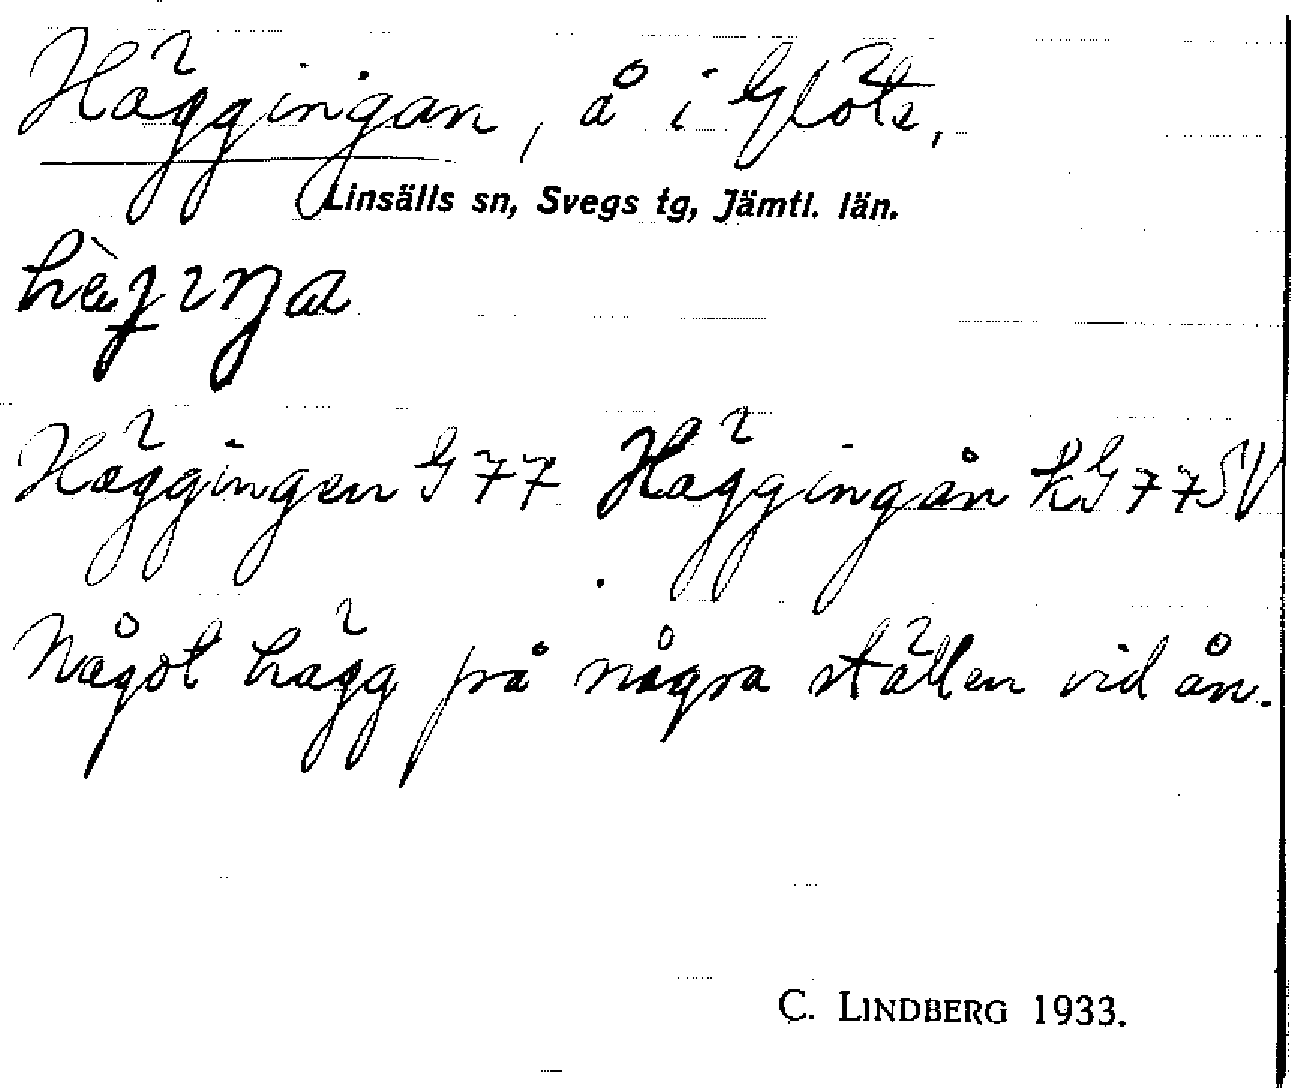 Häggingan, å i Glöte,
Linsälls sn, Svegs tg, Jämtl. län.
Häggingen G 77 Häggingån kG 77 SV
Något hägg på några ställen vid ån.
C. LINDBERG 1933.